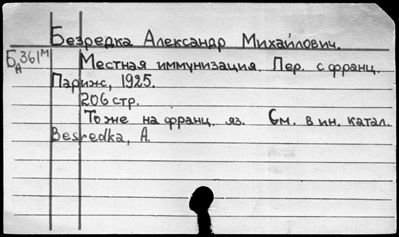 Безредка Александр Михайлович.
БА 361М Местная иммунизация. Пер. с франц.
Париж, 1925.
206 стр.
То же на франц. яз. См. в ин. катал.
Besredka, A.